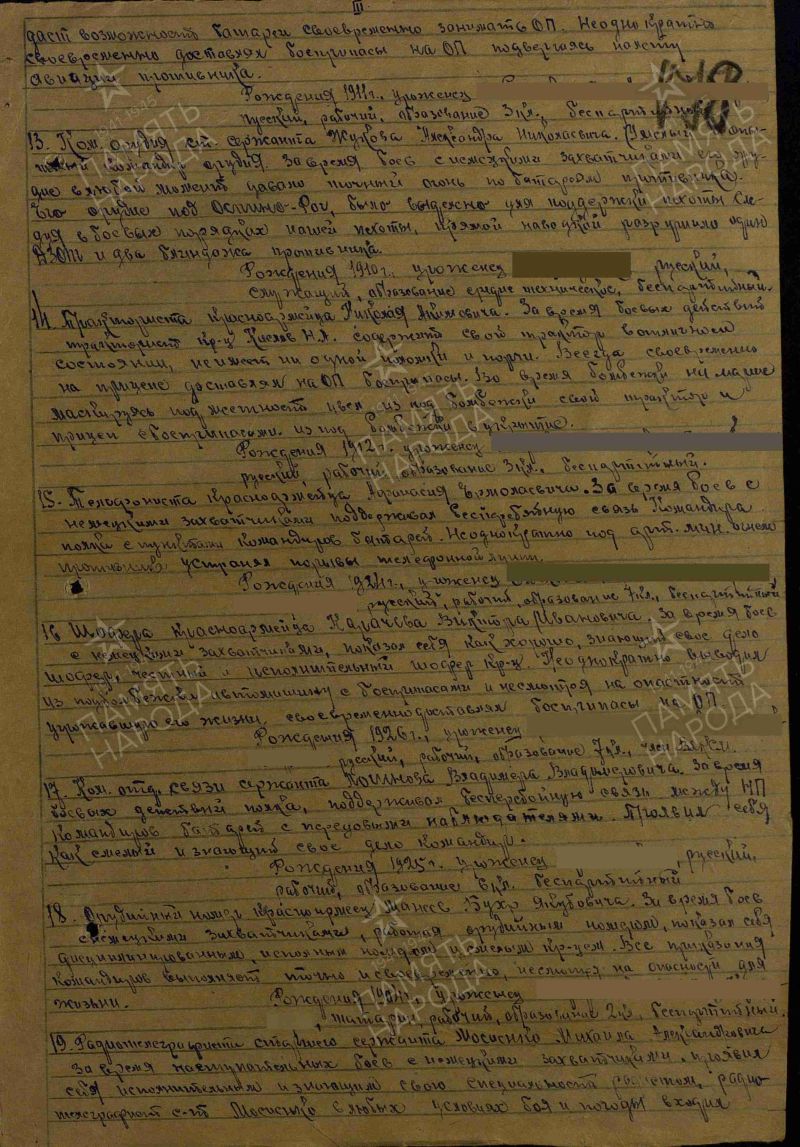 III
даст возможность батареи своевременно занимать ОП. Неоднократно
своевременно доставлял боеприпасы на ОП подвергаясь налету
авиации противника.
Рождения 1911 г., уроженец
русский, рабочий, образование 3 кл., беспартийный
13. Ком. орудия ст. сержанта Жукова Александра Николаевича. Смелый и опы-
тный командир орудия. За время боев с немецкими захватчиками его ору-
дие в любой момент давало точный огонь по батареям противника.
Его орудие под было выделено для поддержки пехоты сле-
дуя в боевых порядках нашей пехоты, прямой наводкой разрушило один
ДЗОТ и два блиндажа противника.
Рождения 1910 г., уроженец русский,
служащий, образование средне техническое, беспартийный.
14. Тракториста красноармейца Николая Акимовича. За время боевых действий
тракторист кр-ц содержит свой трактор в отличном
состоянии, не имеет ни одной поломки и порчи. Всегда своевременно
на прицепе доставлял на ОП боеприпасы. Во время бомбежки на марше
маскируясь под местность увел из под бомбежки свой трактор и
прицеп с боеприпасами из под бомбежки в укрытие.
Рождения 1912 г. уроженец
русский, рабочий, образование 3 кл., беспартийный.
15. Телефониста красноармейца Афанасия Ермолаевича. За время боев с
немецкими захватчиками поддерживал бесперебойную связь Командира
полка с пунктами командиров батарей. Неоднократно под арт. мин. огнем
противника устранял порывы телефонной линии.
Рождения г., уроженец
русский, рабочий, образование 7 кл., беспартийный
16 Шофера красноармейца Виктора Ивановича. За время боев
с немецкими захватчиками, показал себя как хорошо, знающий свое дело
шофер, честный и исполнительный шофер кр-ц. Неоднократно выводил
из под обстрела автомашину с боеприпасами и несмотря на опастность
угрожавшую его жизни, своевременно доставлял боеприпасы на ОП.
Рождения 1926 г., уроженец
русский, рабочий, образование 7 кл., член ВЛКСМ.
17. Ком. отд. связи сержанта Владимира Владимировича. За время
боевых действий полка, поддерживал бесперебойную связь между НП
Командиров батарей с передовыми наблюдателями. Проявил себя
как смелый и знающий свое дело командир.
Рождения 1925 г. уроженец , русский,
рабочий, образование 6 кл. беспартийный
18. Орудийный номер красноармеец За время боев
с немецкими захватчиками, работая орудийным номером, показал себя
дисциплинированным, исполнительным и смелым кр-цем. Все приказания
командиров выполняет точно и своевременно, несмотря на опасности для
жизни. Рождения г., уроженец
, татарин, рабочий, образование 2 кл., беспартийный.
19. Радиотелеграфиста старшего сержанта Мосиенко Михаила Александровича
За время наступательных боев с немецкими захватчиками проявил
себя исполнительным и знающим свою специальность радио-
телеграфист с-т Мосиенко в любых условиях боя и погоды входил